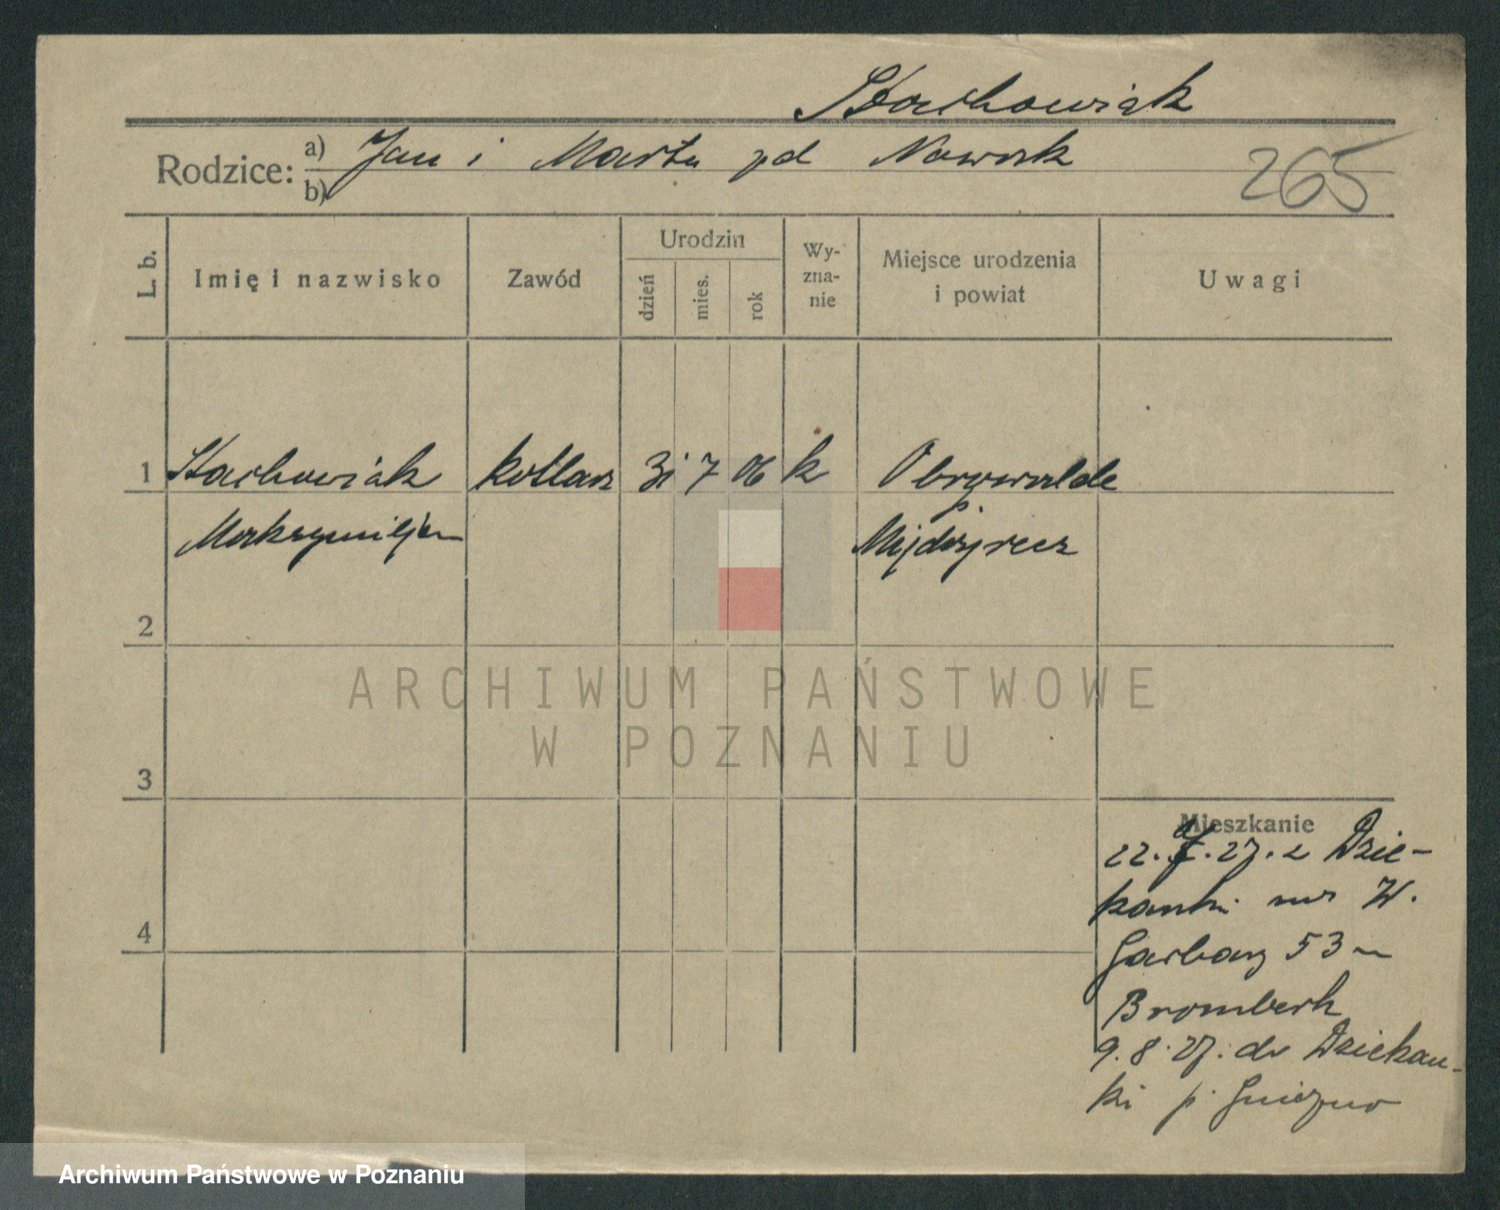 Stachowiak
Rodzice: a) Jan i Marta pd Nowak
b)
265
L. b. Imię i nazwisko Zawód Urodzin dzień mies. rok Wy-zna-nie Miejsce urodzenia i powiat Uwagi
1 Stachowiak kotlarz 31 7 06 k Obrawalde
p.
Maksymiljan Międzyrzecz
2
ARCHIWUM PAŃSTWOWE
W POZNANIU
3
Mieszkanie
22. 7. 27. z Dzie-
kanki na W.
Garbary 53 m
Bromberk
4
9. 8. 27. do Dziekan-
ki p. Gniezno
Archiwum Państwowe w Poznaniu